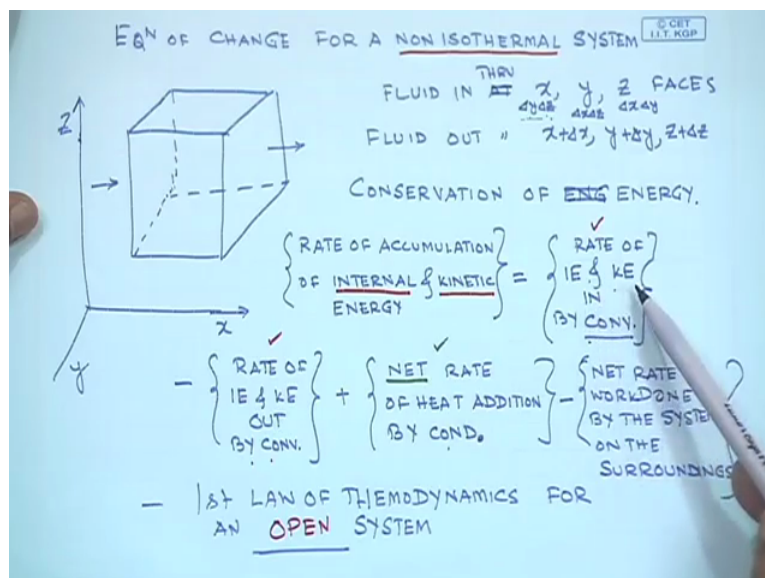 EQN OF CHANGE FOR A NON ISOTHERMAL SYSTEM
© CET
I.I.T. KGP
THRU
FLUID IN x, y, z FACES
ΔyΔz ΔxΔz ΔxΔy
FLUID OUT " x+Δx, y+Δy, z+Δz
Z
CONSERVATION OF ENERGY.
{RATE OF ACCUMULATION
OF INTERNAL & KINETIC
ENERGY} =
{RATE OF
IE & KE
IN
BY CONV.}
x
y
- {RATE OF
IE & KE
OUT
BY CONV.}
+ {NET RATE
OF HEAT ADDITION
BY COND.}
- {NET RATE
WORKDONE
BY THE SYSTEM
ON THE
SURROUNDINGS}
- 1st LAW OF THEMODYNAMICS FOR
AN OPEN SYSTEM